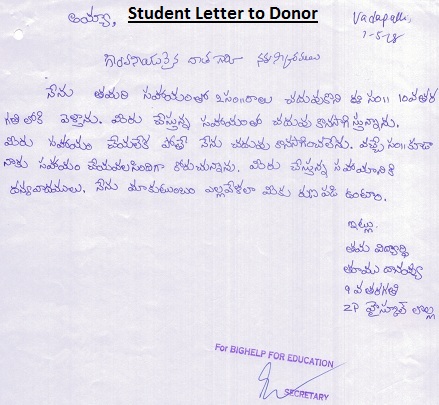 Student Letter to Donor
అయ్యా,
Vadapalli,
1-5-18
గౌరవనీయులైన దాత గారికి నమస్కారములు
నేను తమరి సహాయంతో 2సం||రాలు చదువుకొని ఈ సం|| 10వతర
గతి లోకి వెళ్తాను. మీరు చేస్తున్న సహాయంతో చదువు కొనసాగిస్తున్నాను.
మీరు సహాయం చేయలేక పోతే నేను చదువు కొనసాగించలేను. వచ్చే సం||కూడా
నాకు సహాయం చేయవలసిందిగా కోరుచున్నాను. మీరు చేస్తున్న సహాయానికి
ధన్యవాదములు. నేను మాకుటుంబం ఎల్లవేళలా మీకు రుణపడి ఉంటాం.
ఇట్లు
తమ విద్యార్థి
9వ తరగతి
ZP హైస్కూల్ లొల్ల
For BIGHELP FOR EDUCATION
SECRETARY